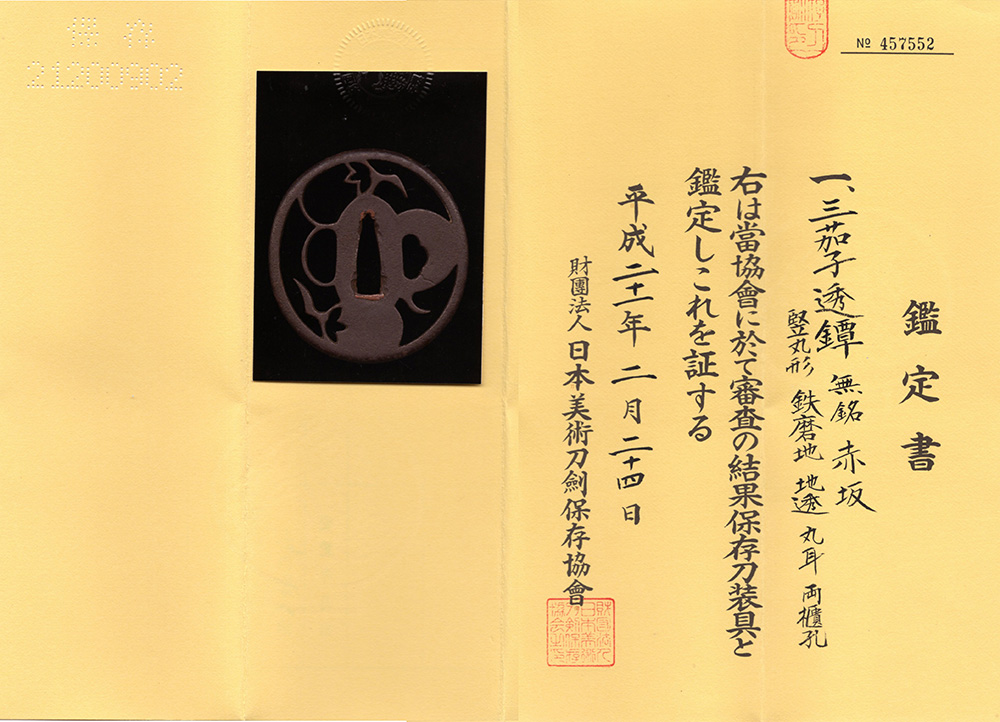 鑑定書
一、三茄子透鐔 無銘 赤坂
竪丸形 鉄磨地 地透 丸耳 両櫃孔
右は當協會に於て審査の結果保存刀装具と
鑑定しこれを証する
平成二十一年 二月二十四日
財團法人 日本美術刀劍保存協會
№ 457552
21200902